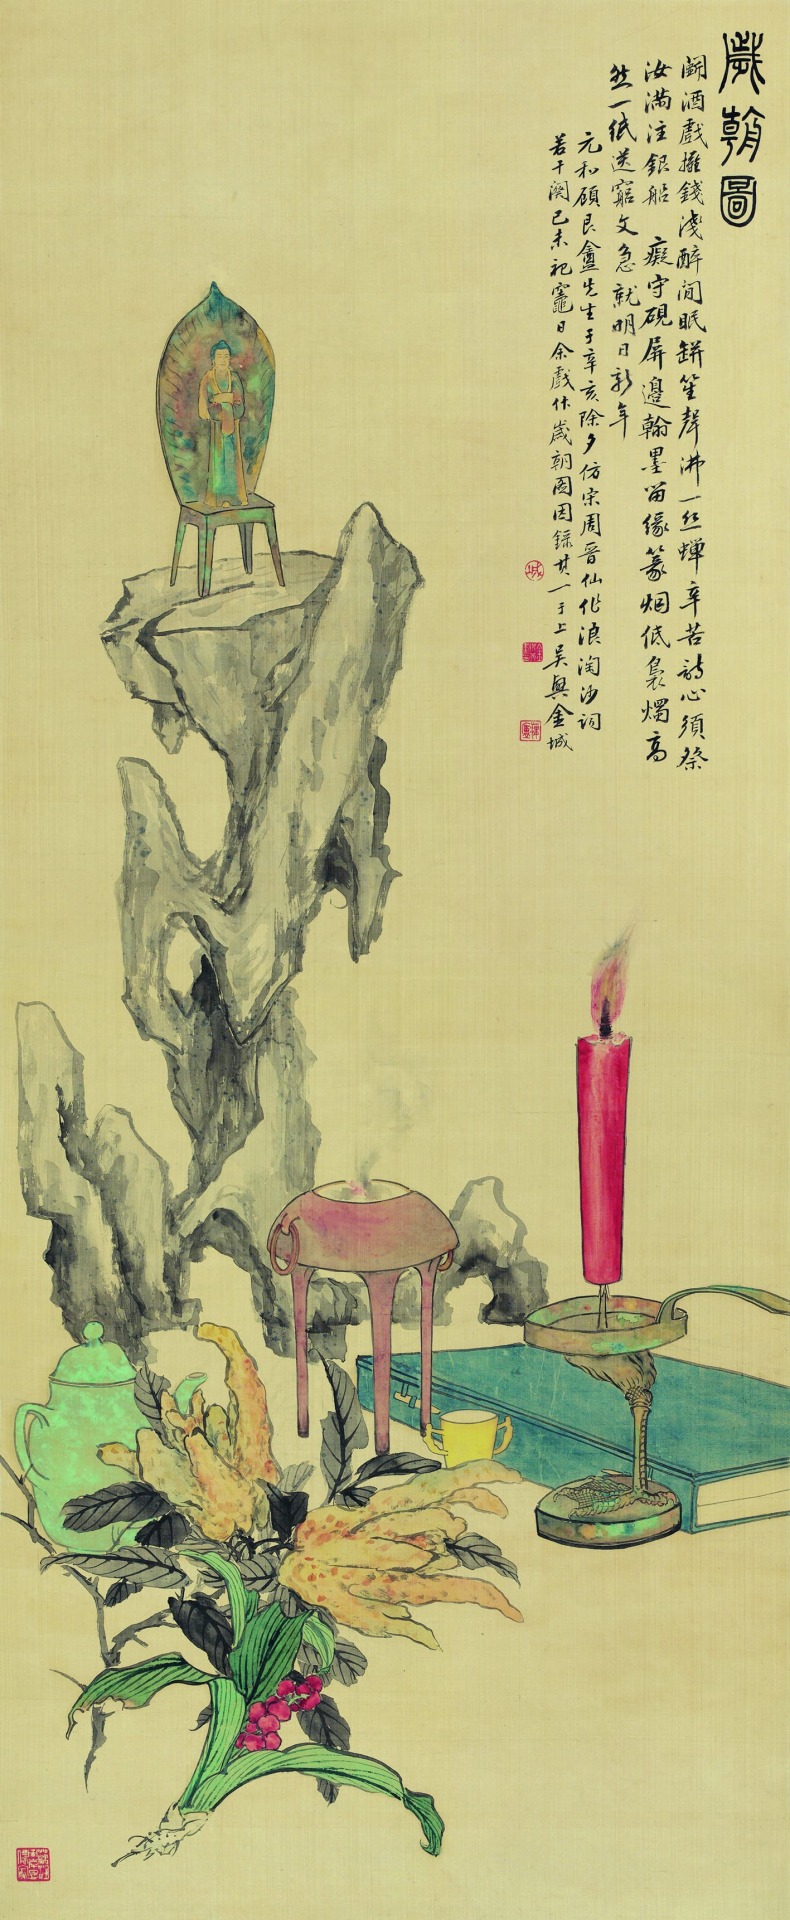 歲朝圖
鬭酒戲攤錢淺醉閒眠缾笙聲沸一絲蟬辛苦詩心須祭
汝滿注銀船　癡守硯屏邊翰墨留緣篆烟低裊燭高
然一紙送窮文急就明日新年
元和顧艮盦先生于辛亥除夕仿宋周晋仙作浪淘沙詞
若干闋己未祀竈日余戲作歲朝圖因錄其一于上吳興金城
城